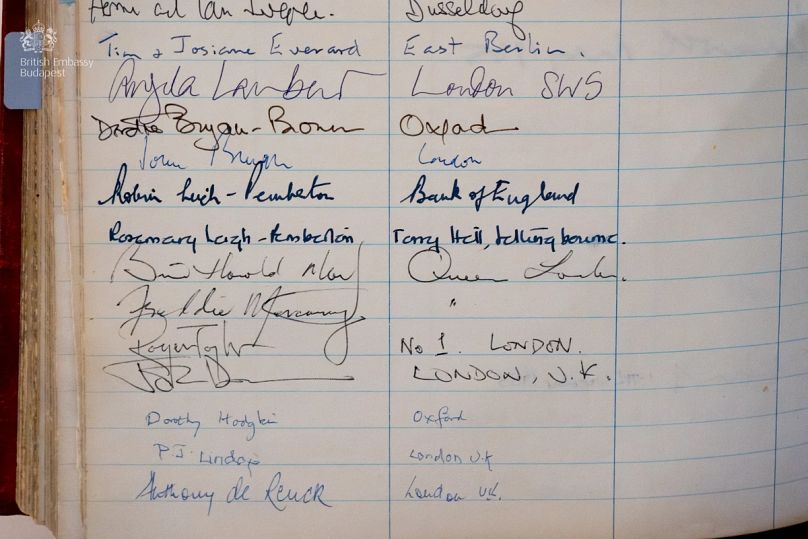 British Embassy
Budapest
Dusseldorf
Tim & Josiane Everard East Berlin.
Angela Lambert London SW5
Bryan-Brown Oxford
John Bryan London
Robin Leigh-Pemberton Bank of England
Rosemary Leigh-Pemberton Torry Hill, Sittingbourne.
Brian Harold May Queen London.
Freddie Mercury "
Roger Taylor No 1. LONDON.
LONDON, U.K.
Dorothy Hodgkin Oxford
P.J. Lindop London U.K
Anthony de Reuck London U.K.